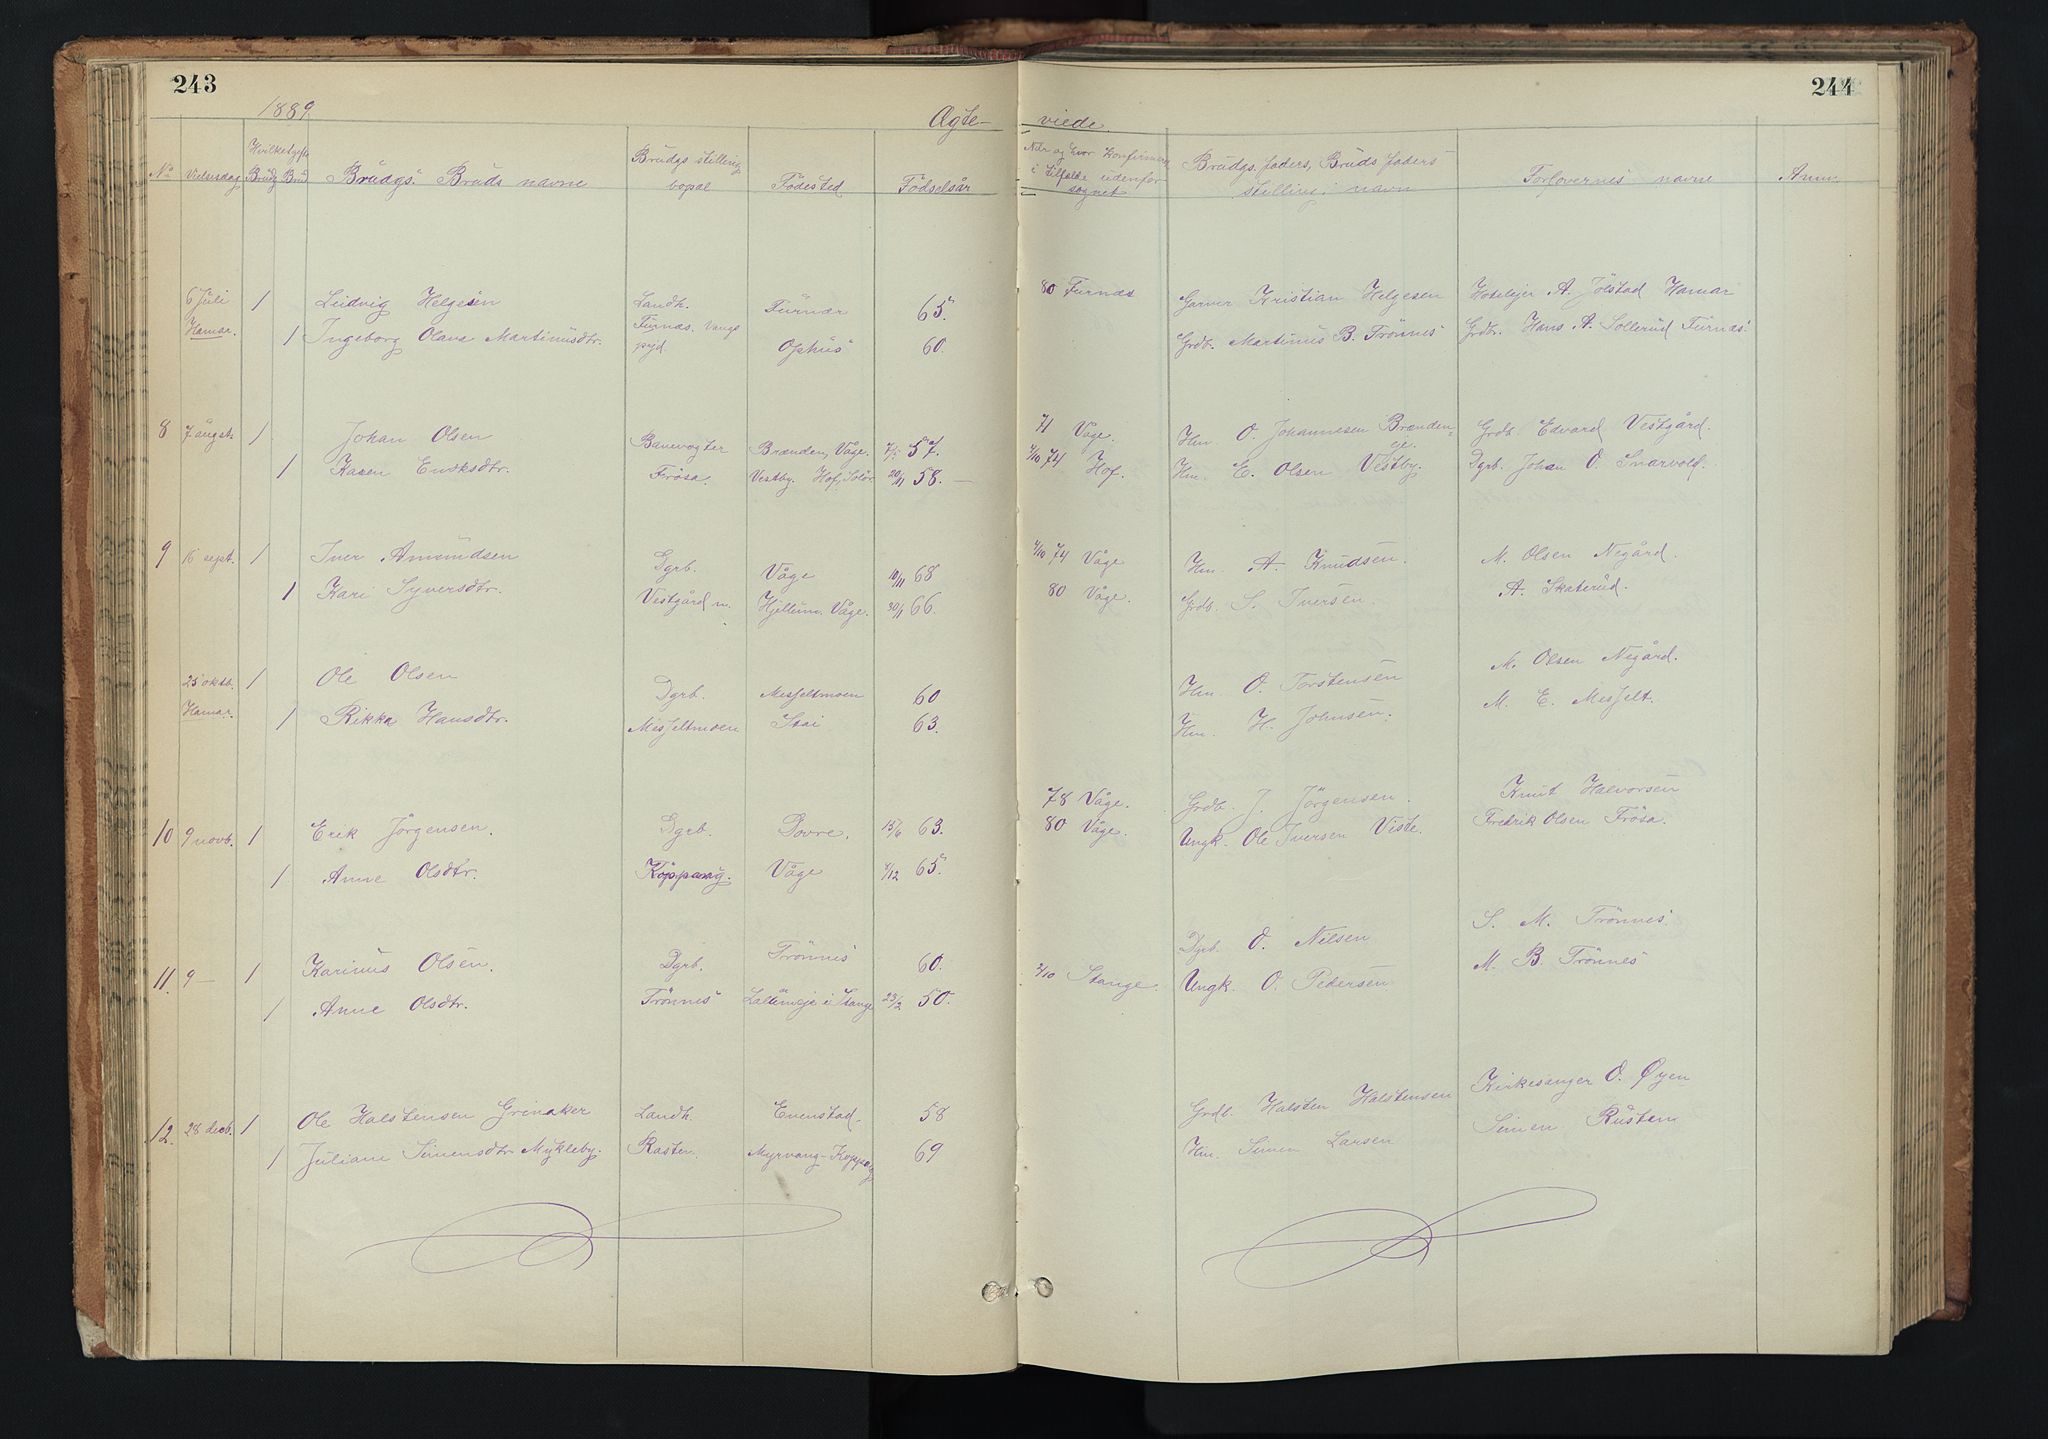 243
244
1889.
Ægte-
viede.
No
Vielsesdag
Hvilket Ægtesk.
Brudg Brud
Brudgs. Bruds navne
Brudgs stilling
bopæl
Födested
Födselsår
Når og hvor konfirmeret
i tilfælde udenfor
sognet
Brudgs. faders, Bruds faders
stilling, navn
Forlovernes navne
Anm.
6 Juli 1 Ludvig Helgesen Landh. Furnæs 65. 80 Furnæs Garver Kristian Helgesen Hotelejer A. Jölstad Hamar
Hamar. 1 Ingeborg Olava Martinusdtr. Furnæs. Vangs Ophus 60. Grdb. Martinus B. Trönnes Grdb. Hans A. Sollerud Furnæs.
prgd.
8 7 augst. 1 Johan Olsen Banevogter Brænden, Våge. 57. 71 Våge. Hm. O. Johannesen Brænden- Grdb. Edvard Vestgård.
eje.
1 Karen Eriksdtr. Frösa. Vestby. Hof, Solör 20/11 58. — 1/10 74 Hof. Hm. E. Olsen Vestby. Dgrb. Johan O. Snarvold.
9 16 sept. 1 Iver Amundsen Dgrb. Våge 10/11 68 4/10 74 Våge Hm. A. Knudsen. M. Olsen Negård.
1 Kari Syversdtr. Vestgård n. Hjellum. Våge. 30/1 66. 80 Våge. Grdb. S. Iversen. A. Skaterud.
25 oktb. 1 Ole Olsen Dgrb. Messeltmoen 60 Hm. O. Torstensen M. Olsen Negård.
Hamar. 1 Rikka Hansdtr. Messeltmoen Stai 63. Hm. H. Johnsen. M. E. Messelt.
10 9 novb. 1 Erik Jörgensen. Dgrb. Dovre. 15/6 63. 78 Våge. Grdb. J. Jörgensen. Knut Halvorsen
1 Anne Olsdtr. Koppang. Våge 4/12 65. 80 Våge. Ungk. Ole Iversen Viste. Fredrik Olsen Frösa.
11. 9 — 1 Karinus Olsen. Dgrb. Trönnes 60. Dgrb. O. Nilsen S. M. Trönnes
1 Anne Olsdtr. Trönnes Lallumeje i Stange 23/2 50. 2/10 Stange. Ungk. O. Pedersen M. B. Trönnes
12. 28 decb. 1 Ole Halstensen Grinaker Landh. Evenstad. 58 Grdb. Halsten Halstensen Kirkesanger O. Øyen
1 Juliane Simensdtr. Mykleby. Rasten. Myrvang-Koppang 69 Hm. Simen Larsen Simen Rusten